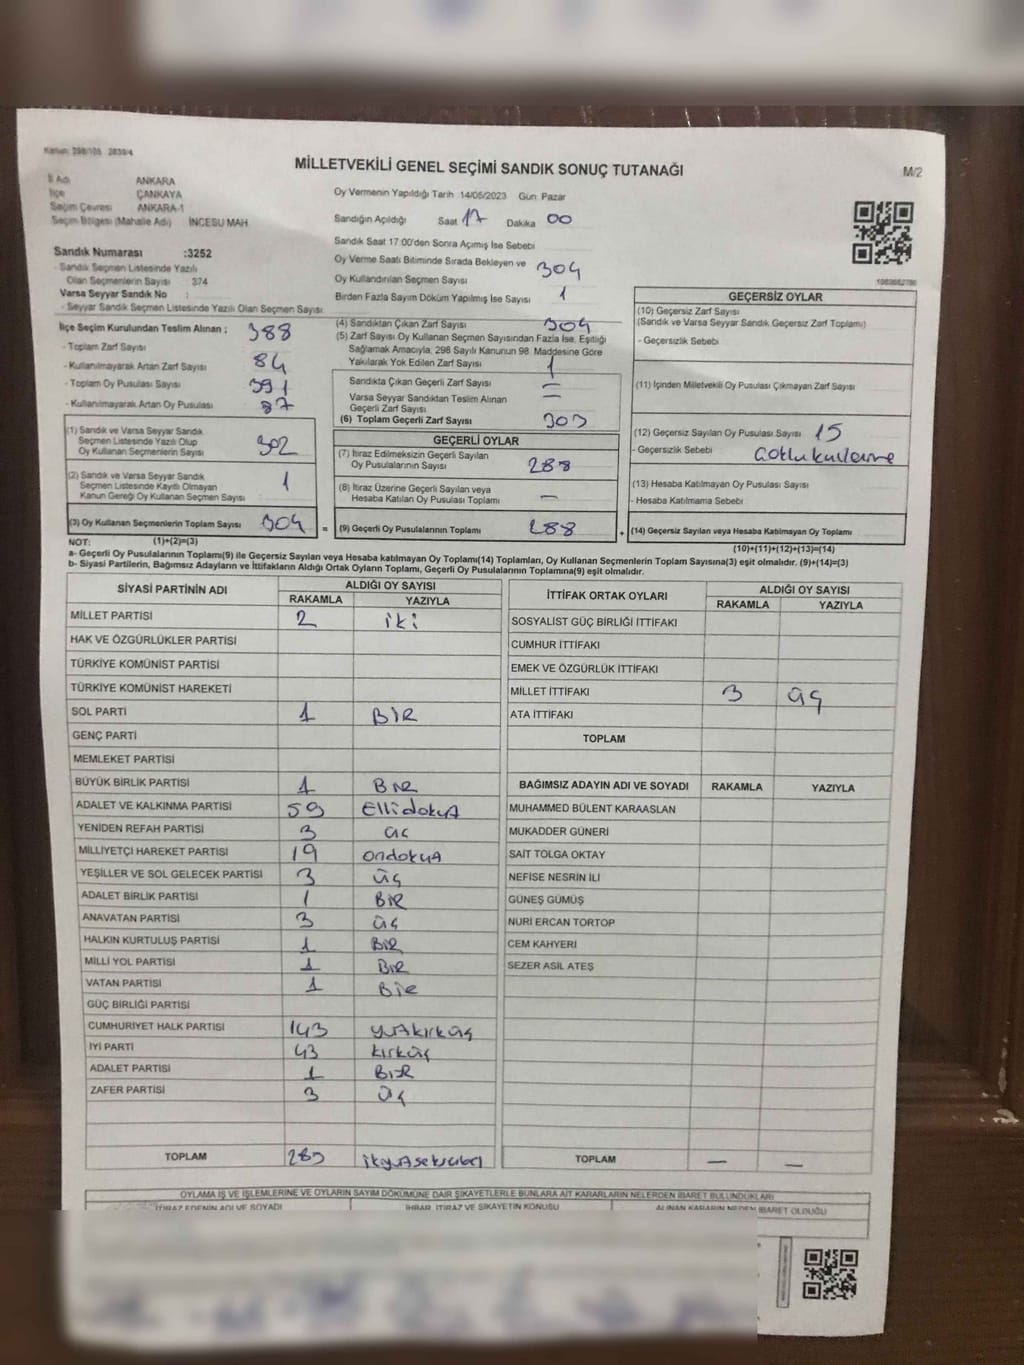 Kanun: 298/105 2839/4
MİLLETVEKİLİ GENEL SEÇİMİ SANDIK SONUÇ TUTANAĞI
M/2
İl Adı ANKARA
İlçe ÇANKAYA
Seçim Çevresi ANKARA-1
Seçim Bölgesi (Mahalle Adı) İNCESU MAH
Oy Vermenin Yapıldığı Tarih 14/05/2023 Gün Pazar
Sandığın Açıldığı Saat 17 Dakika 00
Sandık Saat 17:00'den Sonra Açımış İse Sebebi
Oy Verme Saati Bitiminde Sırada Bekleyen ve
Oy Kullandırılan Seçmen Sayısı 304
Birden Fazla Sayım Döküm Yapılmış İse Sayısı 1
Sandık Numarası :3252
- Sandık Seçmen Listesinde Yazılı
Olan Seçmenlerin Sayısı 374
Varsa Seyyar Sandık No :
- Seyyar Sandık Seçmen Listesinde Yazılı Olan Seçmen Sayısı:
İlçe Seçim Kurulundan Teslim Alınan ; 388
- Toplam Zarf Sayısı
- Kullanılmayarak Artan Zarf Sayısı 84
- Toplam Oy Pusulası Sayısı 391
- Kullanılmayarak Artan Oy Pusulası 87
(1) Sandık ve Varsa Seyyar Sandık
Seçmen Listesinde Yazılı Olup
Oy Kullanan Seçmenlerin Sayısı 302
(2) Sandık ve Varsa Seyyar Sandık
Seçmen Listesinde Kayıtlı Olmayan
Kanun Gereği Oy Kullanan Seçmen Sayısı 1
(3) Oy Kullanan Seçmenlerin Toplam Sayısı 304 =
(4) Sandıktan Çıkan Zarf Sayısı 304
(5) Zarf Sayısı Oy Kullanan Seçmen Sayısından Fazla İse, Eşitliği
Sağlamak Amacıyla, 298 Sayılı Kanunun 98. Maddesine Göre
Yakılarak Yok Edilen Zarf Sayısı 1
Sandıkta Çıkan Geçerli Zarf Sayısı –
Varsa Seyyar Sandıktan Teslim Alınan
Geçerli Zarf Sayısı =
(6) Toplam Geçerli Zarf Sayısı 303
GEÇERLİ OYLAR
(7) İtiraz Edilmeksizin Geçerli Sayılan
Oy Pusulalarının Sayısı 288
(8) İtiraz Üzerine Geçerli Sayılan veya
Hesaba Katılan Oy Pusulası Toplamı —
(9) Geçerli Oy Pusulalarının Toplamı 288 +
GEÇERSİZ OYLAR
(10) Geçersiz Zarf Sayısı
(Sandık ve Varsa Seyyar Sandık Geçersiz Zarf Toplamı)
- Geçersizlik Sebebi
(11) İçinden Milletvekili Oy Pusulası Çıkmayan Zarf Sayısı
(12) Geçersiz Sayılan Oy Pusulası Sayısı 15
- Geçersizlik Sebebi
(13) Hesaba Katılmayan Oy Pusulası Sayısı
- Hesaba Katılmama Sebebi
(14) Geçersiz Sayılan veya Hesaba Katılmayan Oy Toplamı
NOT: (1)+(2)=(3)
(10)+(11)+(12)+(13)=(14)
a- Geçerli Oy Pusulalarının Toplamı(9) ile Geçersiz Sayılan veya Hesaba katılmayan Oy Toplamı(14) Toplamları, Oy Kullanan Seçmenlerin Toplam Sayısına(3) eşit olmalıdır. (9)+(14)=(3)
b- Siyasi Partilerin, Bağımsız Adayların ve İttifakların Aldığı Ortak Oyların Toplamı, Geçerli Oy Pusulalarının Toplamına(9) eşit olmalıdır.
SİYASİ PARTİNİN ADI ALDIĞI OY SAYISI
RAKAMLA YAZIYLA
MİLLET PARTİSİ 2 iki
HAK VE ÖZGÜRLÜKLER PARTİSİ
TÜRKİYE KOMÜNİST PARTİSİ
TÜRKİYE KOMÜNİST HAREKETİ
SOL PARTİ 1 BİR
GENÇ PARTİ
MEMLEKET PARTİSİ
BÜYÜK BİRLİK PARTİSİ 1 BİR
ADALET VE KALKINMA PARTİSİ 59 Ellidokuz
YENİDEN REFAH PARTİSİ 3 üç
MİLLİYETÇİ HAREKET PARTİSİ 19 ondokuz
YEŞİLLER VE SOL GELECEK PARTİSİ 3 üç
ADALET BİRLİK PARTİSİ 1 BİR
ANAVATAN PARTİSİ 3 üç
HALKIN KURTULUŞ PARTİSİ 1 BİR
MİLLİ YOL PARTİSİ 1 BİR
VATAN PARTİSİ 1 Bir
GÜÇ BİRLİĞİ PARTİSİ
CUMHURİYET HALK PARTİSİ 143 yüzkırküç
İYİ PARTİ 43 kırküç
ADALET PARTİSİ 1 BİR
ZAFER PARTİSİ 3 üç
TOPLAM 285
İTTİFAK ORTAK OYLARI ALDIĞI OY SAYISI
RAKAMLA YAZIYLA
SOSYALİST GÜÇ BİRLİĞİ İTTİFAKI
CUMHUR İTTİFAKI
EMEK VE ÖZGÜRLÜK İTTİFAKI
MİLLET İTTİFAKI 3 üç
ATA İTTİFAKI
TOPLAM
BAĞIMSIZ ADAYIN ADI VE SOYADI RAKAMLA YAZIYLA
MUHAMMED BÜLENT KARAASLAN
MUKADDER GÜNERİ
SAİT TOLGA OKTAY
NEFİSE NESRİN İLİ
GÜNEŞ GÜMÜŞ
NURİ ERCAN TORTOP
CEM KAHYERİ
SEZER ASIL ATEŞ
TOPLAM — —
OYLAMA İŞ VE İŞLEMLERİNE VE OYLARIN SAYIM DÖKÜMÜNE DAİR ŞİKAYETLERLE BUNLARA AİT KARARLARIN NELERDEN İBARET BULUNDUKLARI
İTİRAZ EDENİN ADI VE SOYADI İHBAR, İTİRAZ VE ŞİKAYETİN KONUSU ALINAN KARARIN NEDEN İBARET OLDUĞU